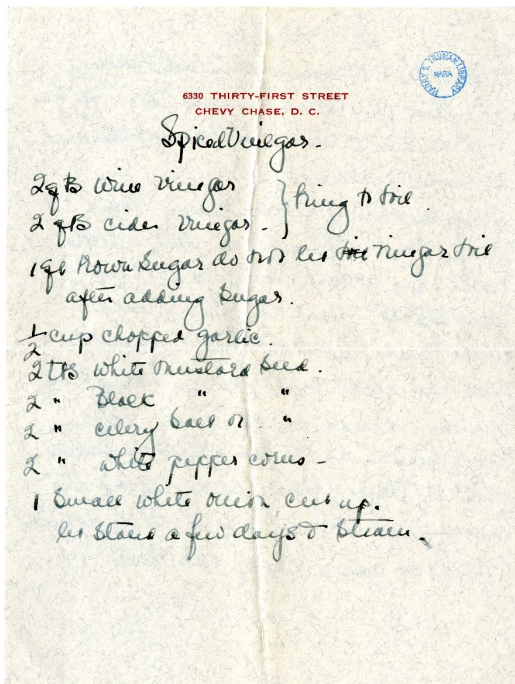 HARRY S. TRUMAN LIBRARY
NARA
6330 THIRTY-FIRST STREET
CHEVY CHASE, D. C.
Spiced Vinegar.
2 qts wine vinegar
2 qts cider vinegar. } bring to boil.
1 qt brown sugar do not let vinegar boil
after adding sugar.
1/2 cup chopped garlic.
2 tbs white mustard seed.
2 " Black " "
2 " celery salt or "
2 " white pepper corns -
1 small white onion, cut up.
let stand a few days & strain.